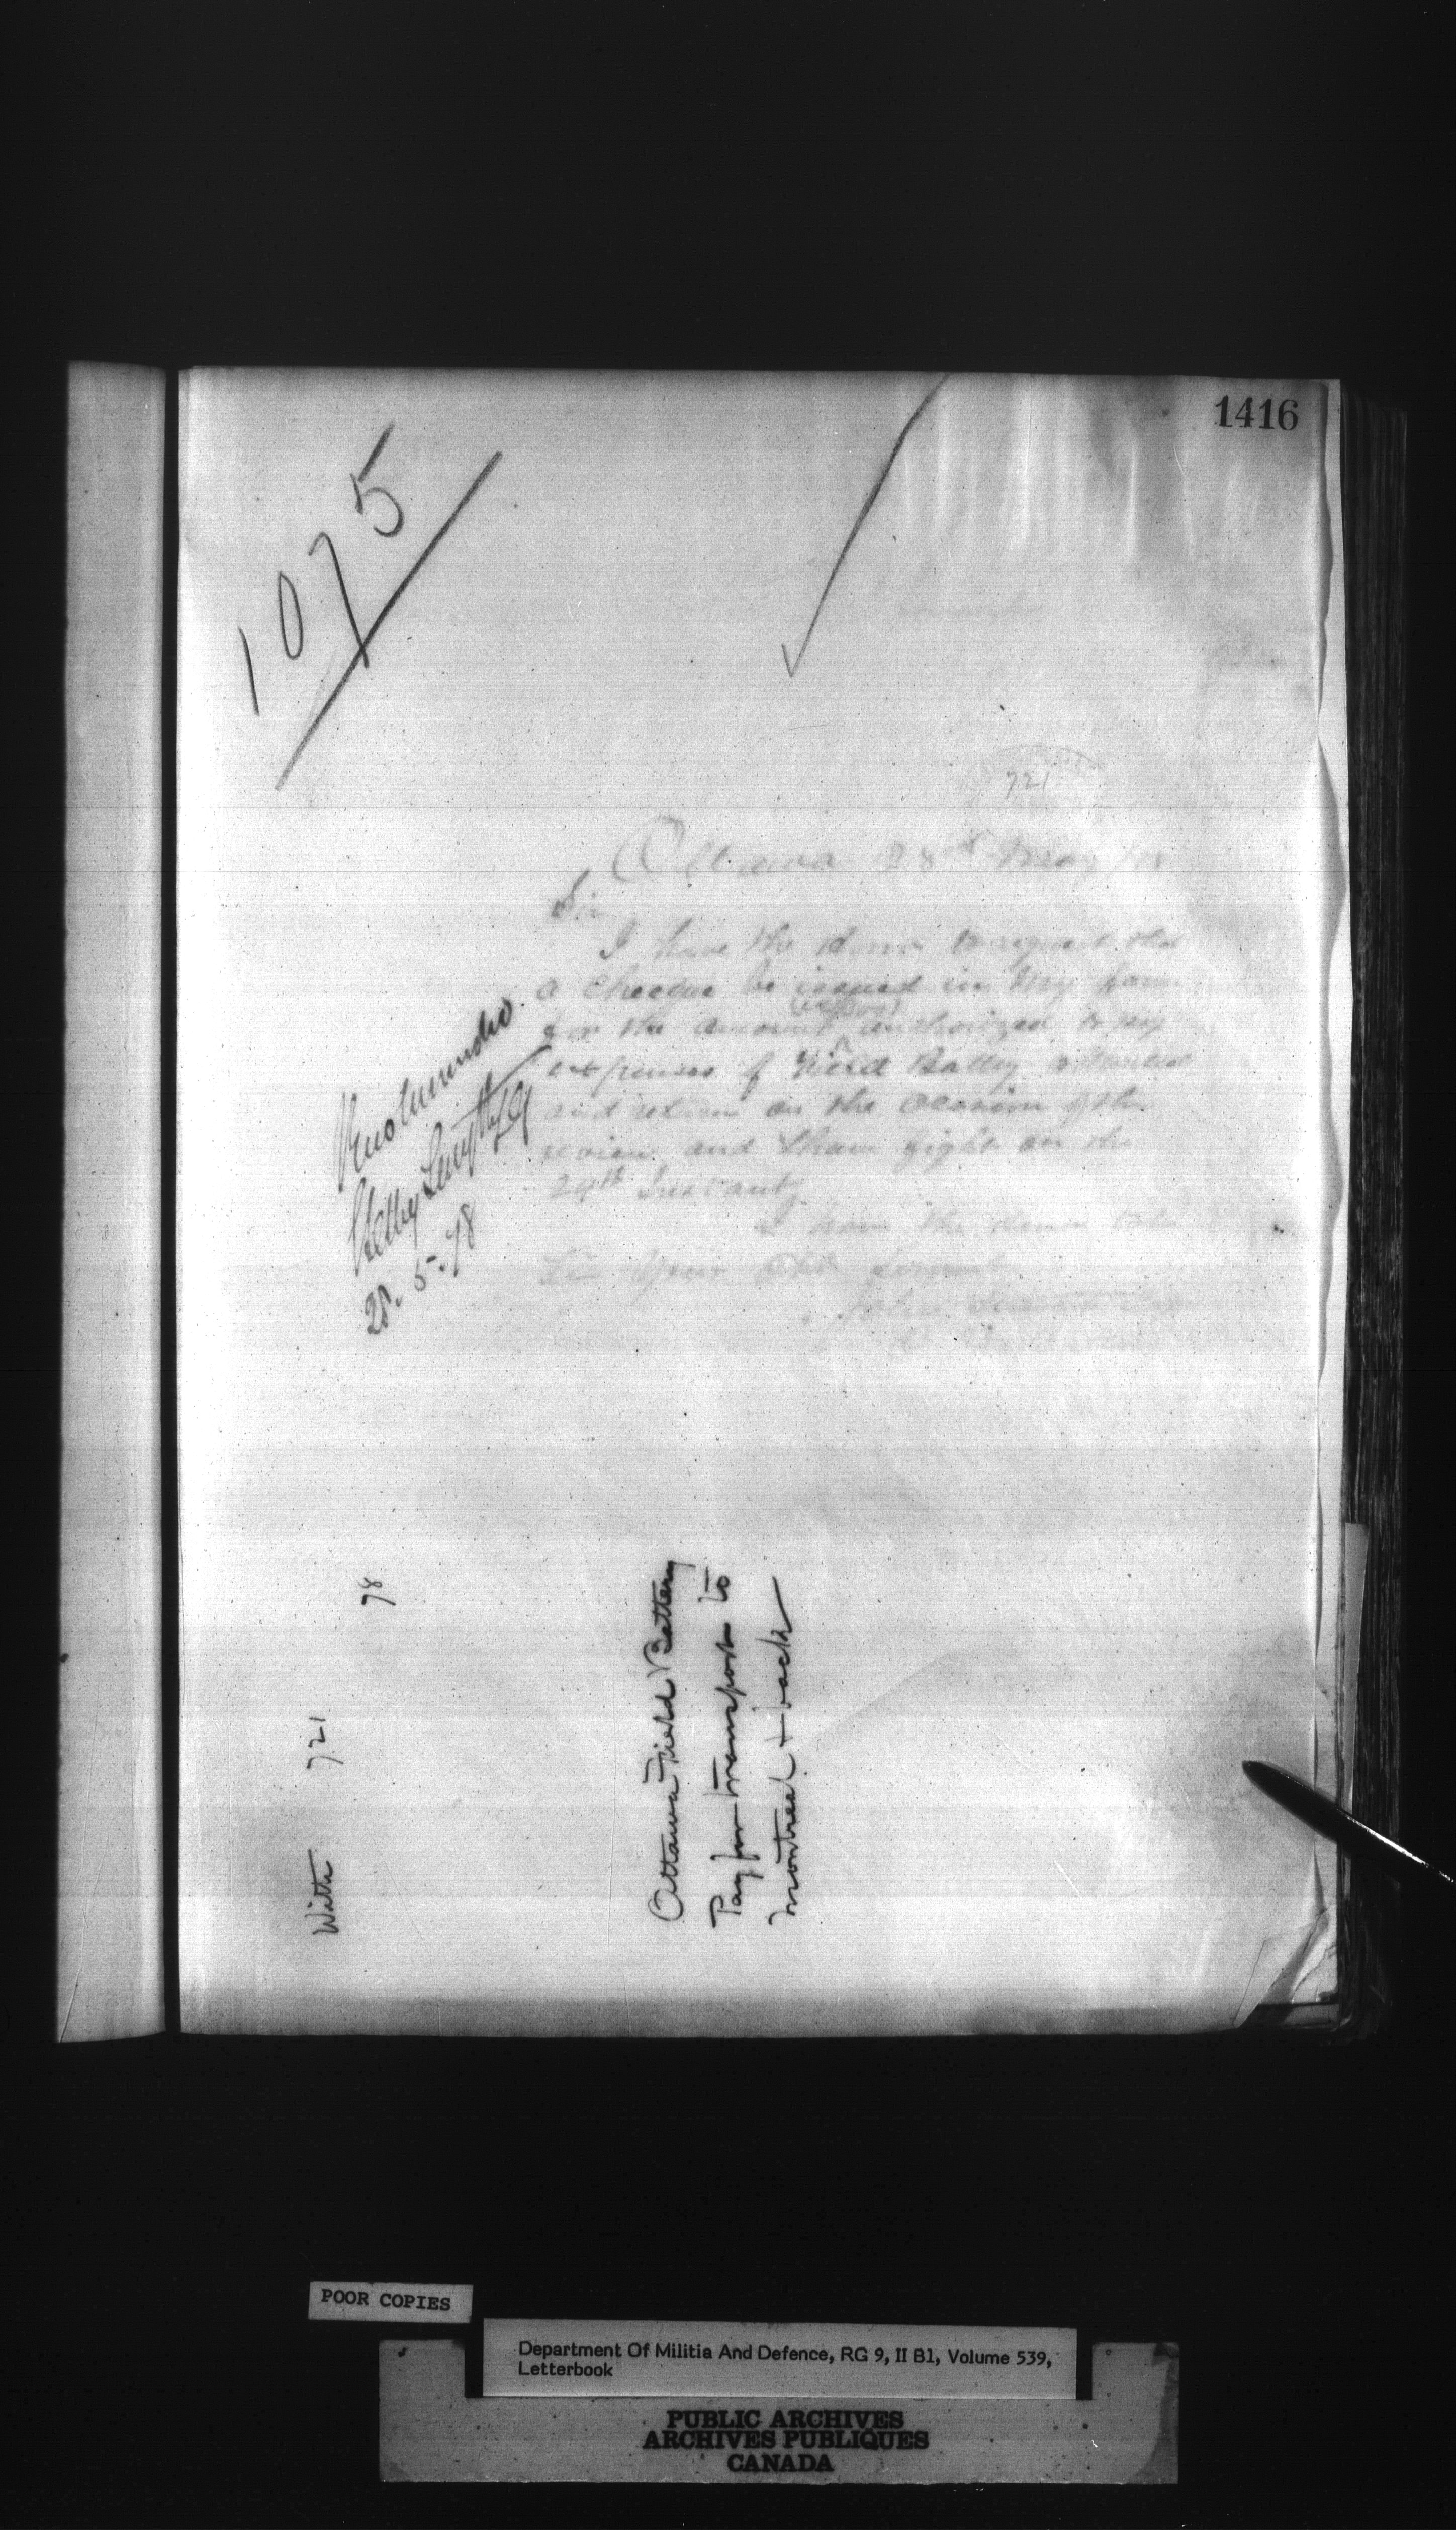 1416
1075
721
Ottawa 28th May /78
Sir
I have the honor to request that
a cheque be issued in my favor
for the amount authorized to pay
expenses of Field Battery to Montreal
and return on the occasion of the
review and Sham fight on the
24th Instant
I have the honor to be
Sir Your Obt Servant
John Stewart Capt
Recommended
28.5.78
With 721
78
Ottawa Field Battery
Pay for transport to
Montreal + back
POOR COPIES
Department Of Militia And Defence, RG 9, II B1, Volume 539,
Letterbook
PUBLIC ARCHIVES
ARCHIVES PUBLIQUES
CANADA